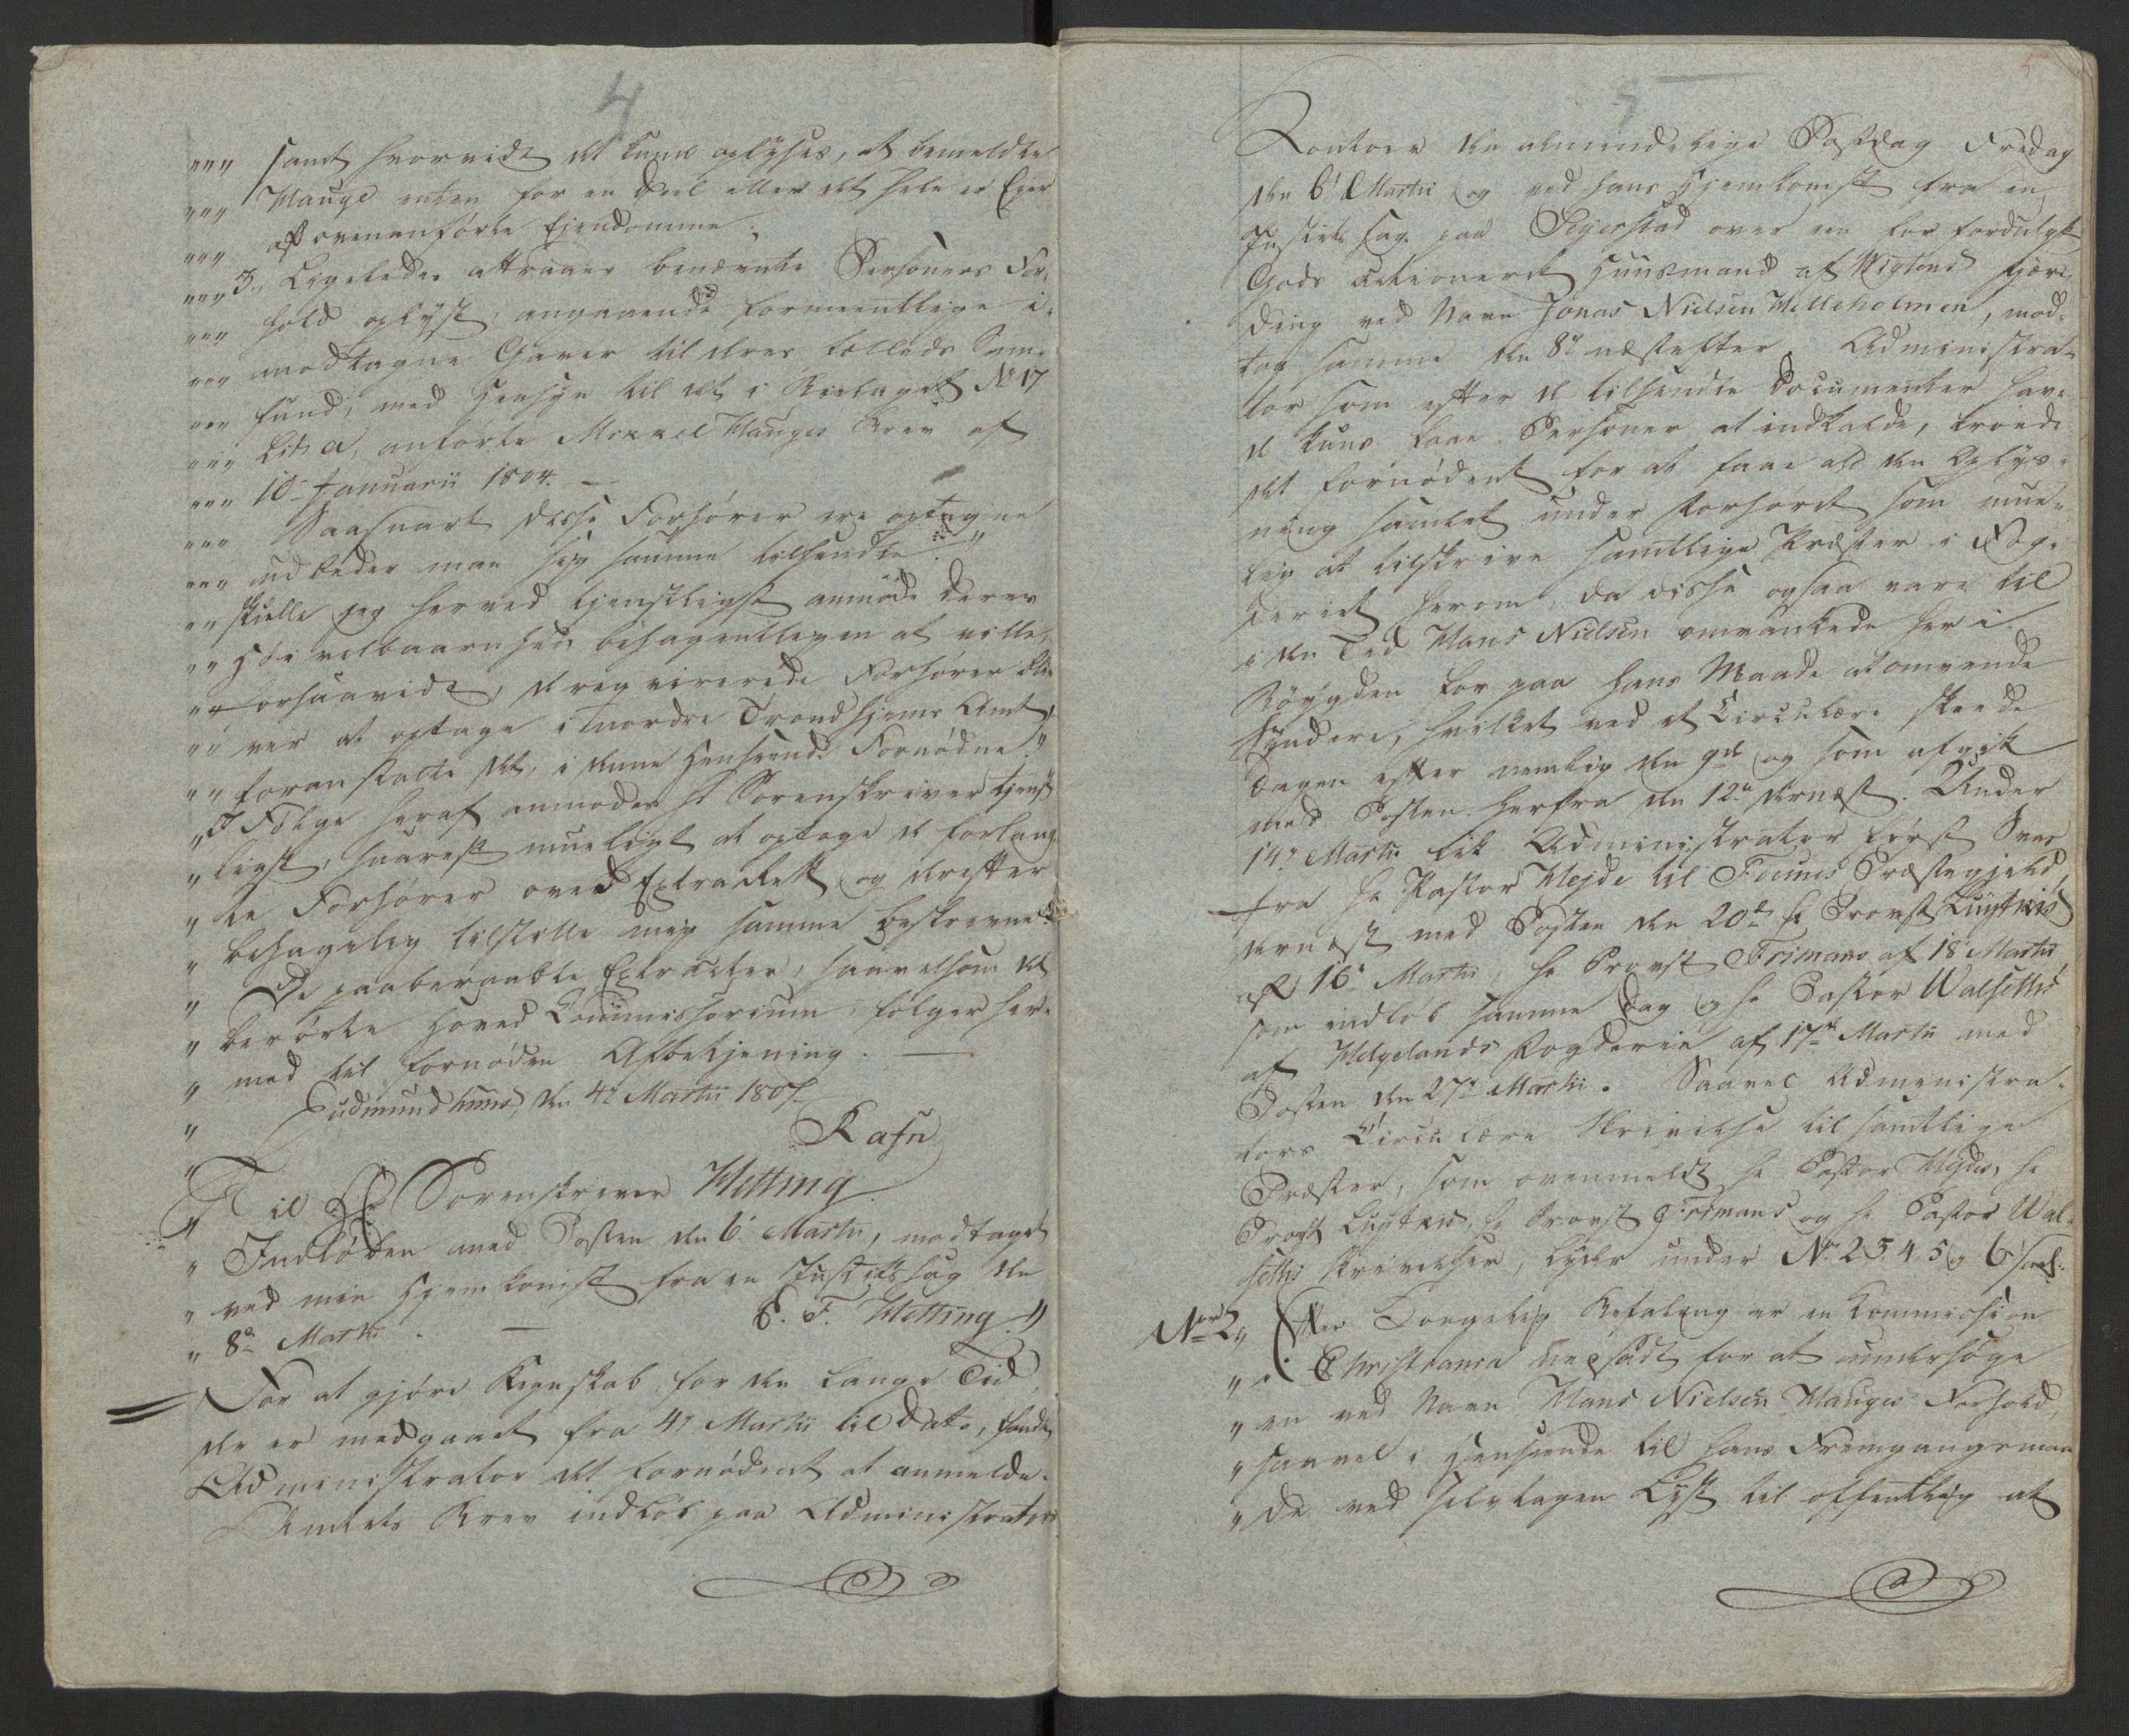 4
""" samt hvorvidt det kunde oplyses, at bemeldte
""" Hauge enten for en Deel eller det hele er Eyer
""" af ovenanførte Eiendomme;
""" 3., Ligeledes attraaes benævnte Personers For-
""" hold oplyst, angaaende formeentlige i-
""" modtagne Gaver til deres kaldede Sam-
""" fund, med Hensyn til det i Bielaget No 17
""" Lit a, anførte Mikkel Hauges Brev af
""" 10de Januarii 1804. —
""" Saasnart disse Forhører ere optagne
""" udbeder man sig samme tilsendte."
"" skulle jeg herved tjenstligst anmode Deres
"" Høivelbaarenhed behageligen at ville,
"" forsaavidt, de reqvirerede Forhører bli-
"" ver at optage i Nordre Trondhjems Amt,
"" foranstalte det, i denne Henseende Fornødne."
" I Følge heraf anmodes Hr Sorenskriver tjenst-
" ligst, snarest mueligt at optage de forlang-
" te Forhører over Extractet og derefter
" behagelig tilstille mig samme beskrevne.
" De paaberaabte Extracter, saavelsom det
" berørte Hoved Commissorium, følger her-
" med til fornøden Afbetjening. —
" Gudmundhuus, den 4de Martii 1807.
" Rafn
" Til Hr Sorenskriver Hetting.
" Indløben med Posten den 6te Martii, modtaget
" ved min Hjemkomst fra en Justitssag den
" 8de Martii. — E. F. Hetting."
For at gjøre Regnskab for den lange Tid,
der er medgaaet fra 4de Martii til Dato, fandt
Administrator det fornødent at anmelde.
Amtets Brev indløb paa Administrators
5
Contoir den almindelige Postdag Fredag
den 6te Martii og ved hans Hjemkomst fra en
Justits Sag paa Segerstad over en for fordulgt
Gods actioneret Huusmand af Wigtens Fjær-
ding ved Navn Jonas Nielsen Helleholmen, mod-
tog samme den 8de næstefter. Administra-
tor som efter de tilsendte Documenter hav-
de kuns faae Personer at indkalde, troede
det fornødent for at faae ald den Oplys-
ning samlet under Forhøret som mue-
lig at tilskrive samtlige Præster i Fog-
deriet herom, da disse ogsaa vare til
i den Tid Hans Nielsen omvankede her i
Bøygden for paa hans Maade at omvende
Syndere, hvilket ved et Circulære skeede
Dagen efter nemlig den 9de og som afgik
med Posten herfra den 12te dernæst. Under
14de Martii fik Administrator først Svar
fra Hr Pastor Hejde til Foznes Præstegjeld,
dernæst med Posten den 20de Hr Provst Luytkis
af 16de Martii, Hr Provst Frimans af 18de Martii,
som indløb samme Dag og Hr Pastor Walseths
af Helgelands Fogderie af 17de Martii med
Posten den 27de Martii. Saavel Administra-
tors Circulære Skrivelse til samtlige
Præster, som ovenmeldt Hr Pastor Hejdes, Hr
Provst Luytkis, Hr Provst Frimans og Hr Pastor Wal-
seths Skrivelser, lyder under No 2 3. 4. 5 og 6 saal:
Nor 2., " Efter Kongelig Befaling er en Kommission
" i Christiania nedsadt for at undersøge
" en ved Navn Hans Nielsen Hauges Forhold,
" saavel i Henseende til hans Fremgangsmaa-
" de ved selvtagen Lyst til offentlig at